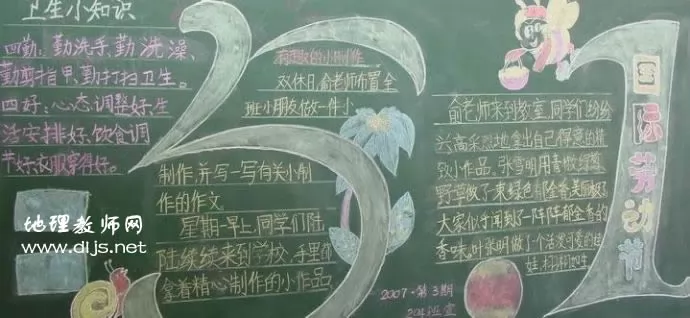 卫生小知识
四勤：勤洗手、勤洗澡、
勤剪指甲、勤扫卫生。
四好：心态调整好、生
活安排好、饮食调
节好、衣服穿得好。
有趣的小制作
双休日，俞老师布置全
班小朋友做一件小
制作，并写一写有关小制
作的作文。
星期一早上，同学们陆
陆续续来到学校，手里都
拿着精心制作的小作品。
俞老师来到教室，同学们纷纷
兴高采烈地拿出自己得意的
小作品。张雪明用
野草做了一束绿色
大家似乎闻到了一阵阵
香味。叶张明做了个活灵可爱的娃
娃
51
国际劳动节
2007·第3期
204班宣
地理教师网
www.dljs.net